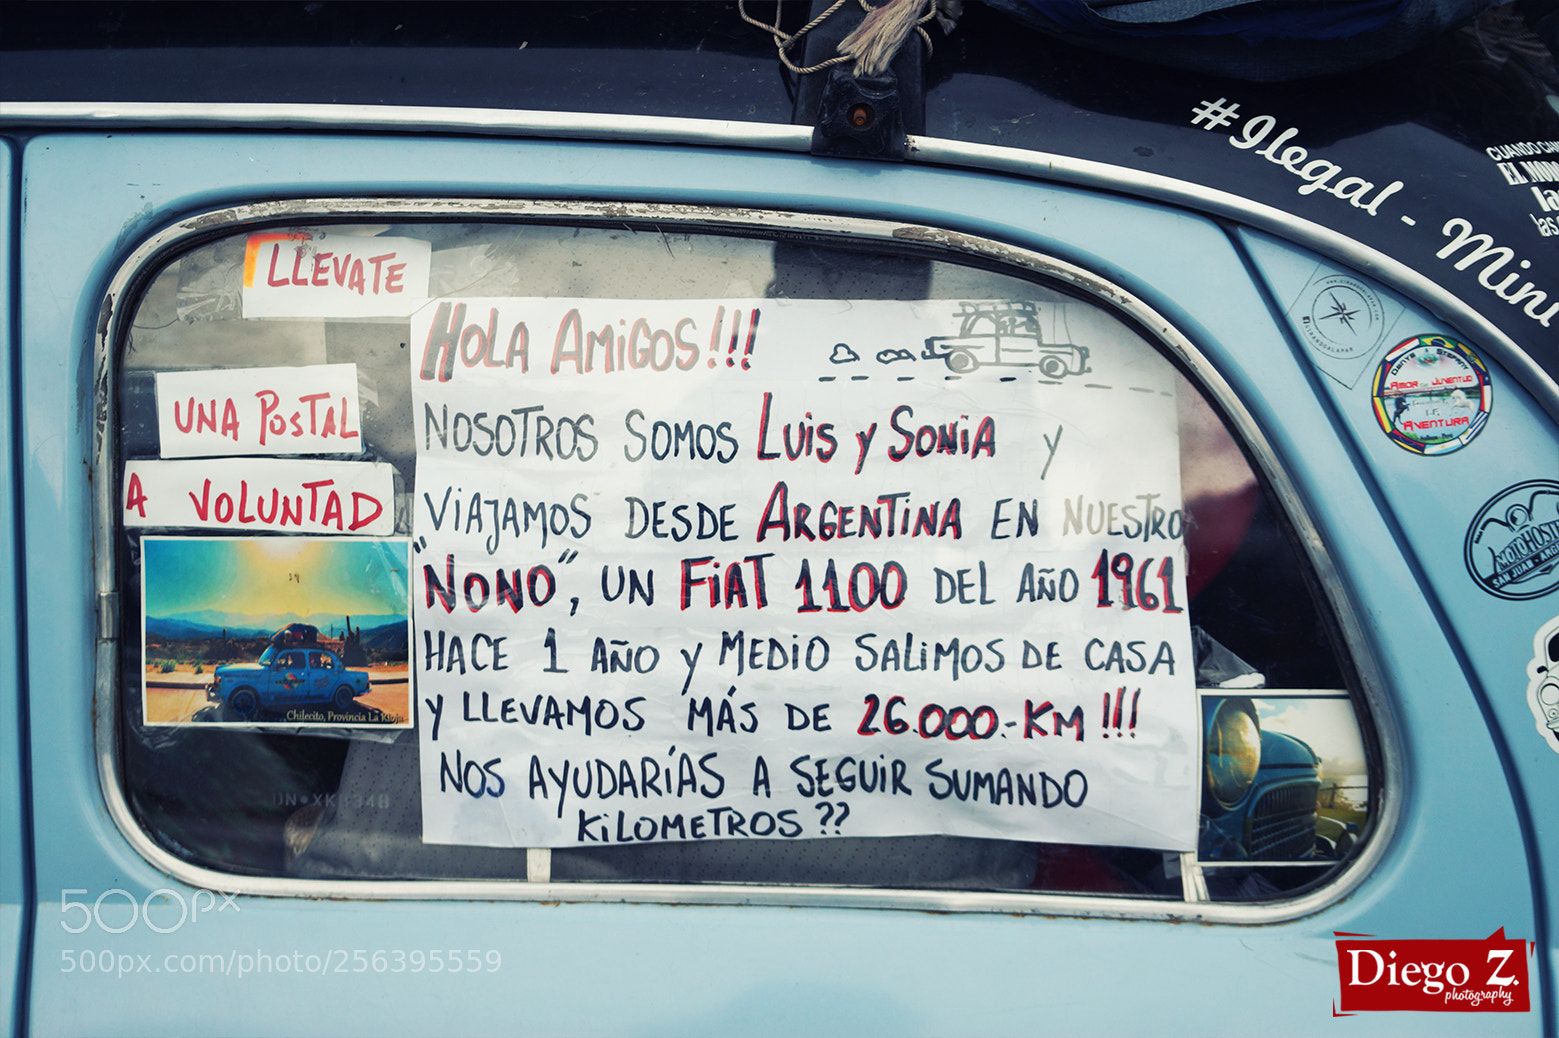 #Ilegal - Mini
LLEVATE
UNA POSTAL
A VOLUNTAD
Chilecito, Provincia La Rioja
HOLA AMiGOS!!!
NOSOTROS SOMOS LUiS y SONiA y
ViAJAMOS DESDE ARGENTiNA EN NUESTRO
"NONO", UN FiAT 1100 DEL AÑO 1961
HACE 1 AÑO y MEDiO SALiMOS DE CASA
y LLEVAMOS MÁS DE 26.000.-KM!!!
NOS AYUDARÍAS A SEGUiR SUMANDO
KiLOMETROS??
AMOR JUVENTUD
AVENTURA
MOTOHOSTE
SAN JUAN - AR
500px
500px.com/photo/256395559
Diego Z.
photography